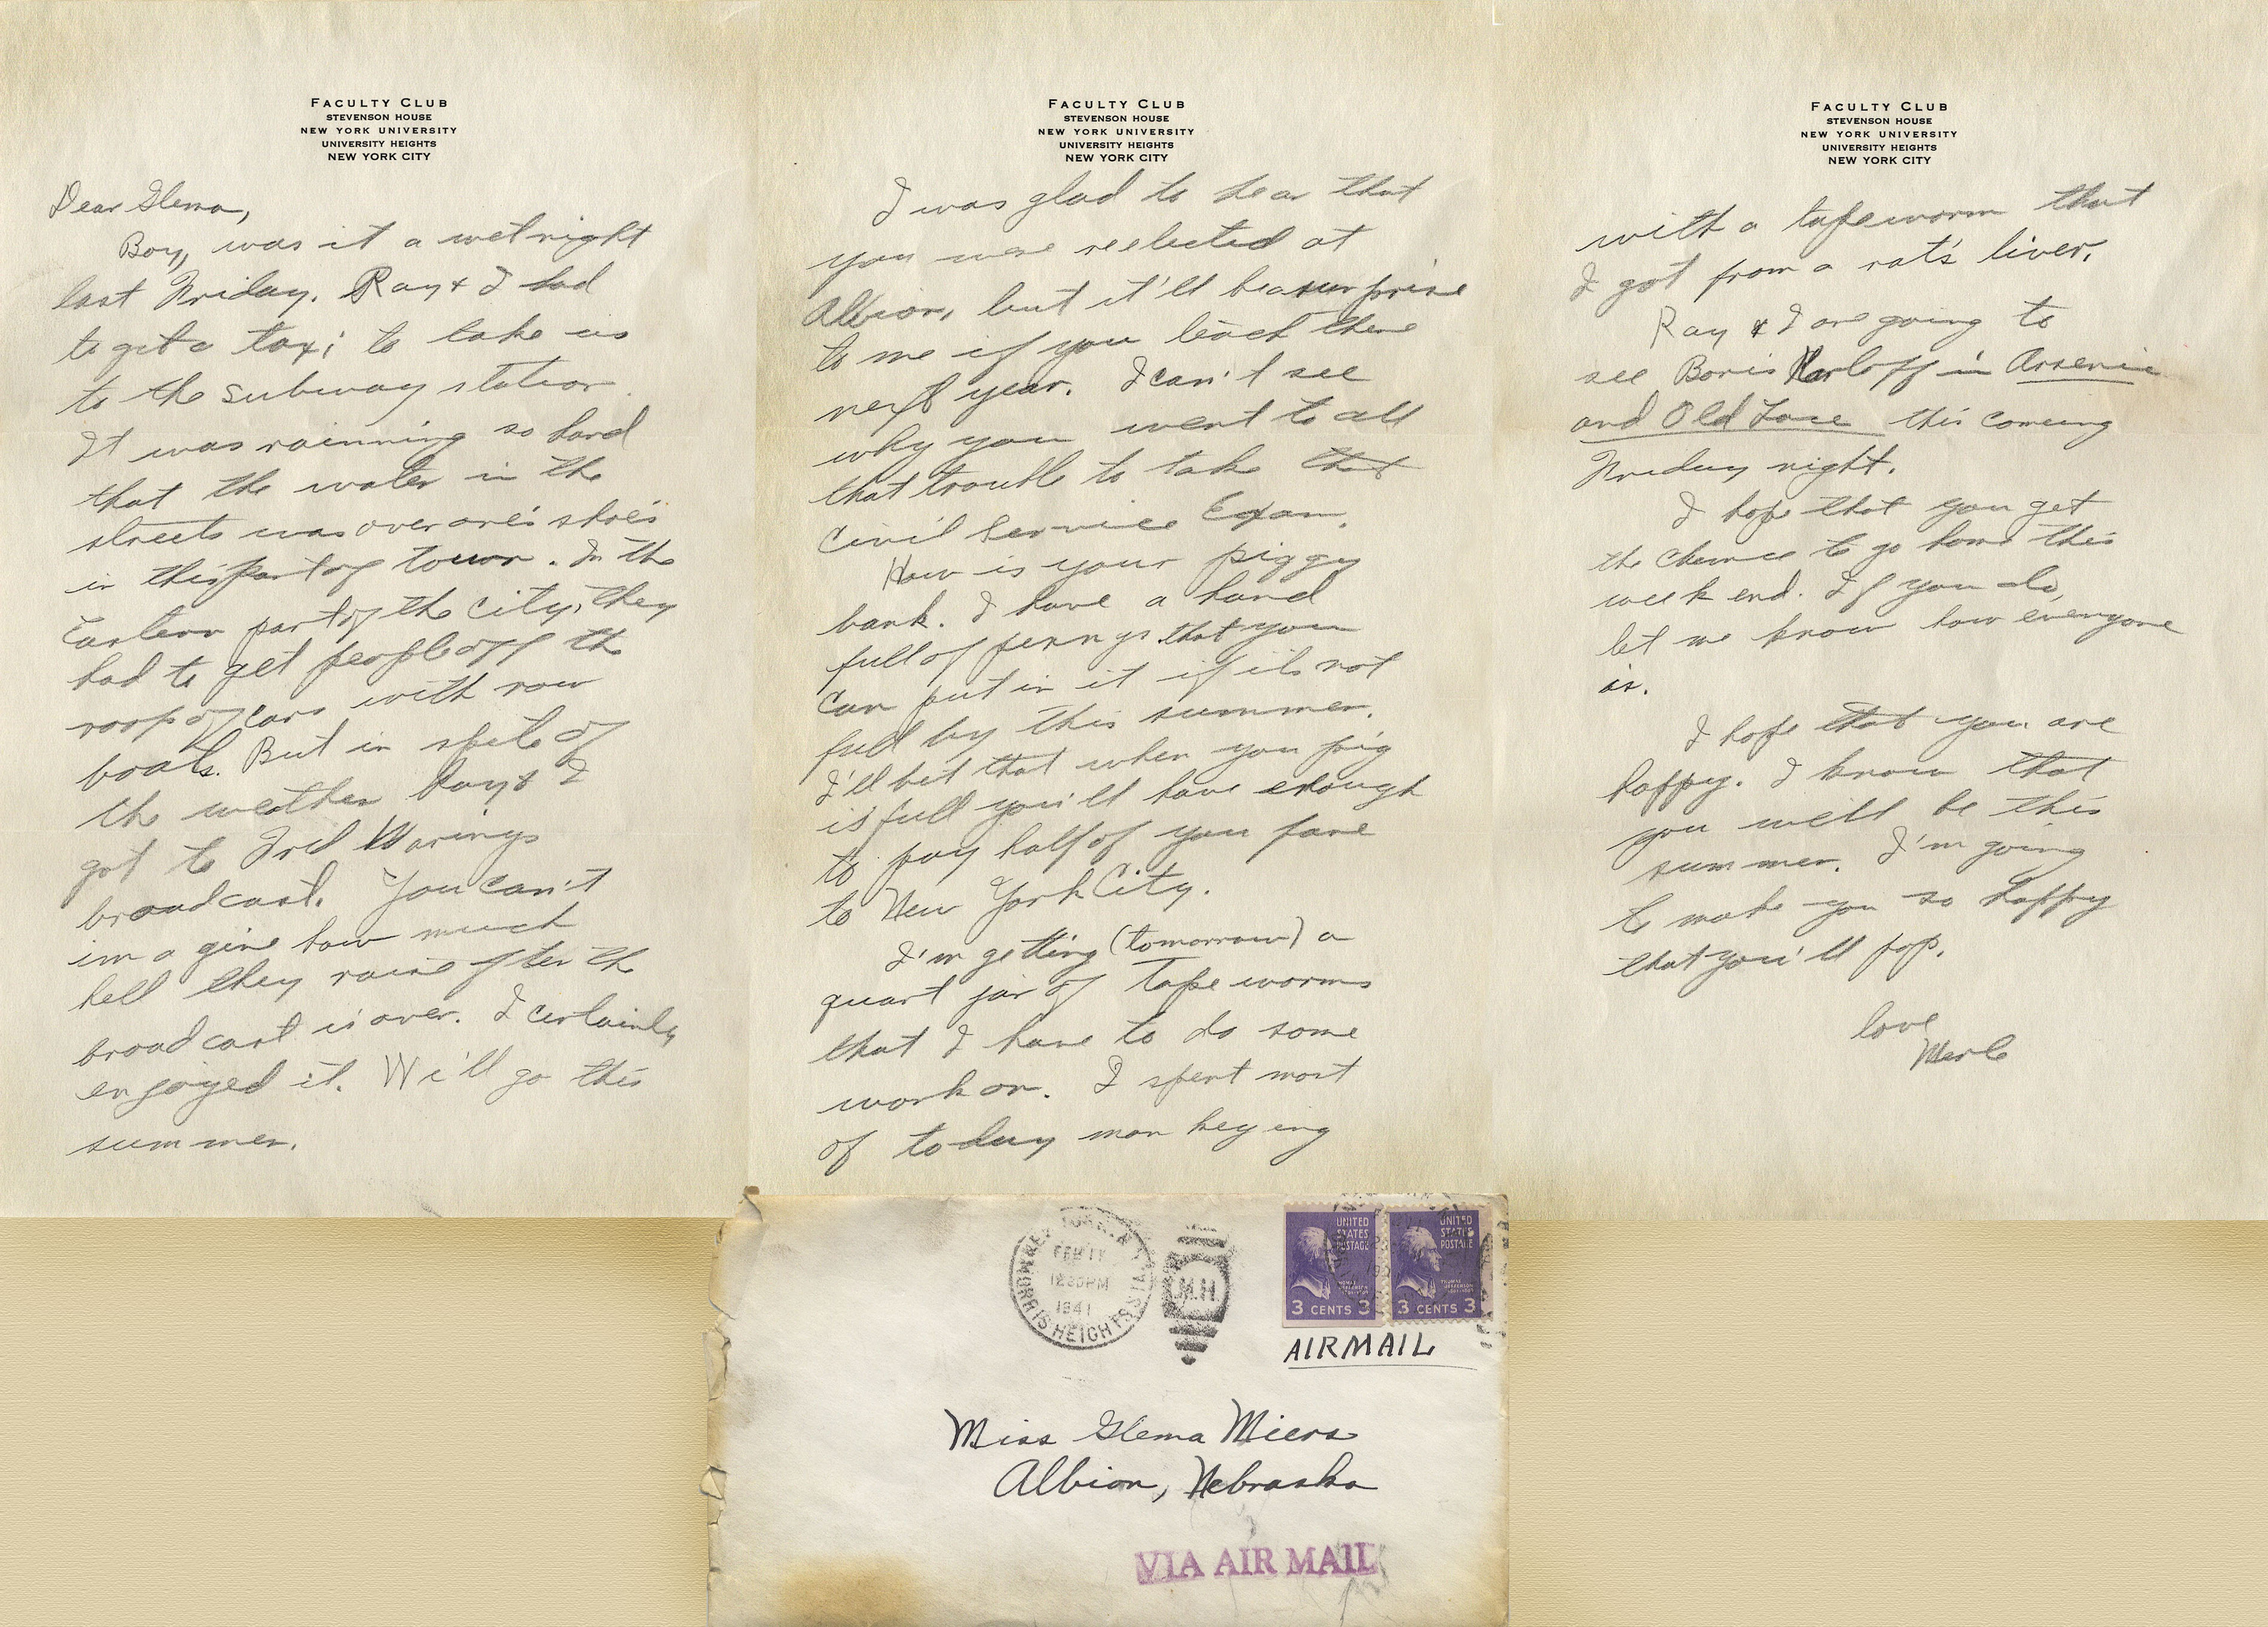 FACULTY CLUB
STEVENSON HOUSE
NEW YORK UNIVERSITY
UNIVERSITY HEIGHTS
NEW YORK CITY
Dear Glema,
Boy, was it a wet night
last Friday. Ray & I had
to get a taxi to take us
to the subway station.
It was rainning so hard
that the water in the
streets was over one's shoes
in this part of town. In the
Eastern part of the City, they
had to get people off the
roofs of cars with row
boats. But in spite of
the weather Ray & I
got to Fred Warings
broadcast. You can't
imagine how much
hell they raise after the
broadcast is over. I certainly
enjoyed it. We'll go this
summer.
FACULTY CLUB
STEVENSON HOUSE
NEW YORK UNIVERSITY
UNIVERSITY HEIGHTS
NEW YORK CITY
I was glad to hear that
you were reelected at
Albion, but it'll be a surprise
to me if you teach there
next year. I can't see
why you went to all
that trouble to take that
Civil Service Exam.
How is your piggy
bank. I have a hand
full of pennys that you
can put in it if its not
full by this summer.
I'll bet that when you pig
is full you'll have enough
to pay half of you fare
to New York City.
I'm getting (tomorrow) a
quart jar of tape worms
that I have to do some
work on. I spent most
of today monkeying
FACULTY CLUB
STEVENSON HOUSE
NEW YORK UNIVERSITY
UNIVERSITY HEIGHTS
NEW YORK CITY
with a tapeworm that
I got from a rat's liver.
Ray & I are going to
see Boris Karloff in Arsenic
and Old Lace this coming
Friday night.
I hope that you get
the chance to go home this
week end. If you do,
let me know how everyone
is.
I hope that you are
happy. I know that
you will be this
summer. I'm going
to make you so happy
that you'll pop.
love
Merle
NEW YORK, N.Y.
FEB 11
12 30 PM
1941
MORRIS HEIGHTS STA.
M.H.
UNITED STATES POSTAGE
THOMAS JEFFERSON
3 CENTS 3
UNITED STATES POSTAGE
THOMAS JEFFERSON
3 CENTS 3
AIRMAIL
Miss Glema Miers
Albion, Nebraska
VIA AIR MAIL